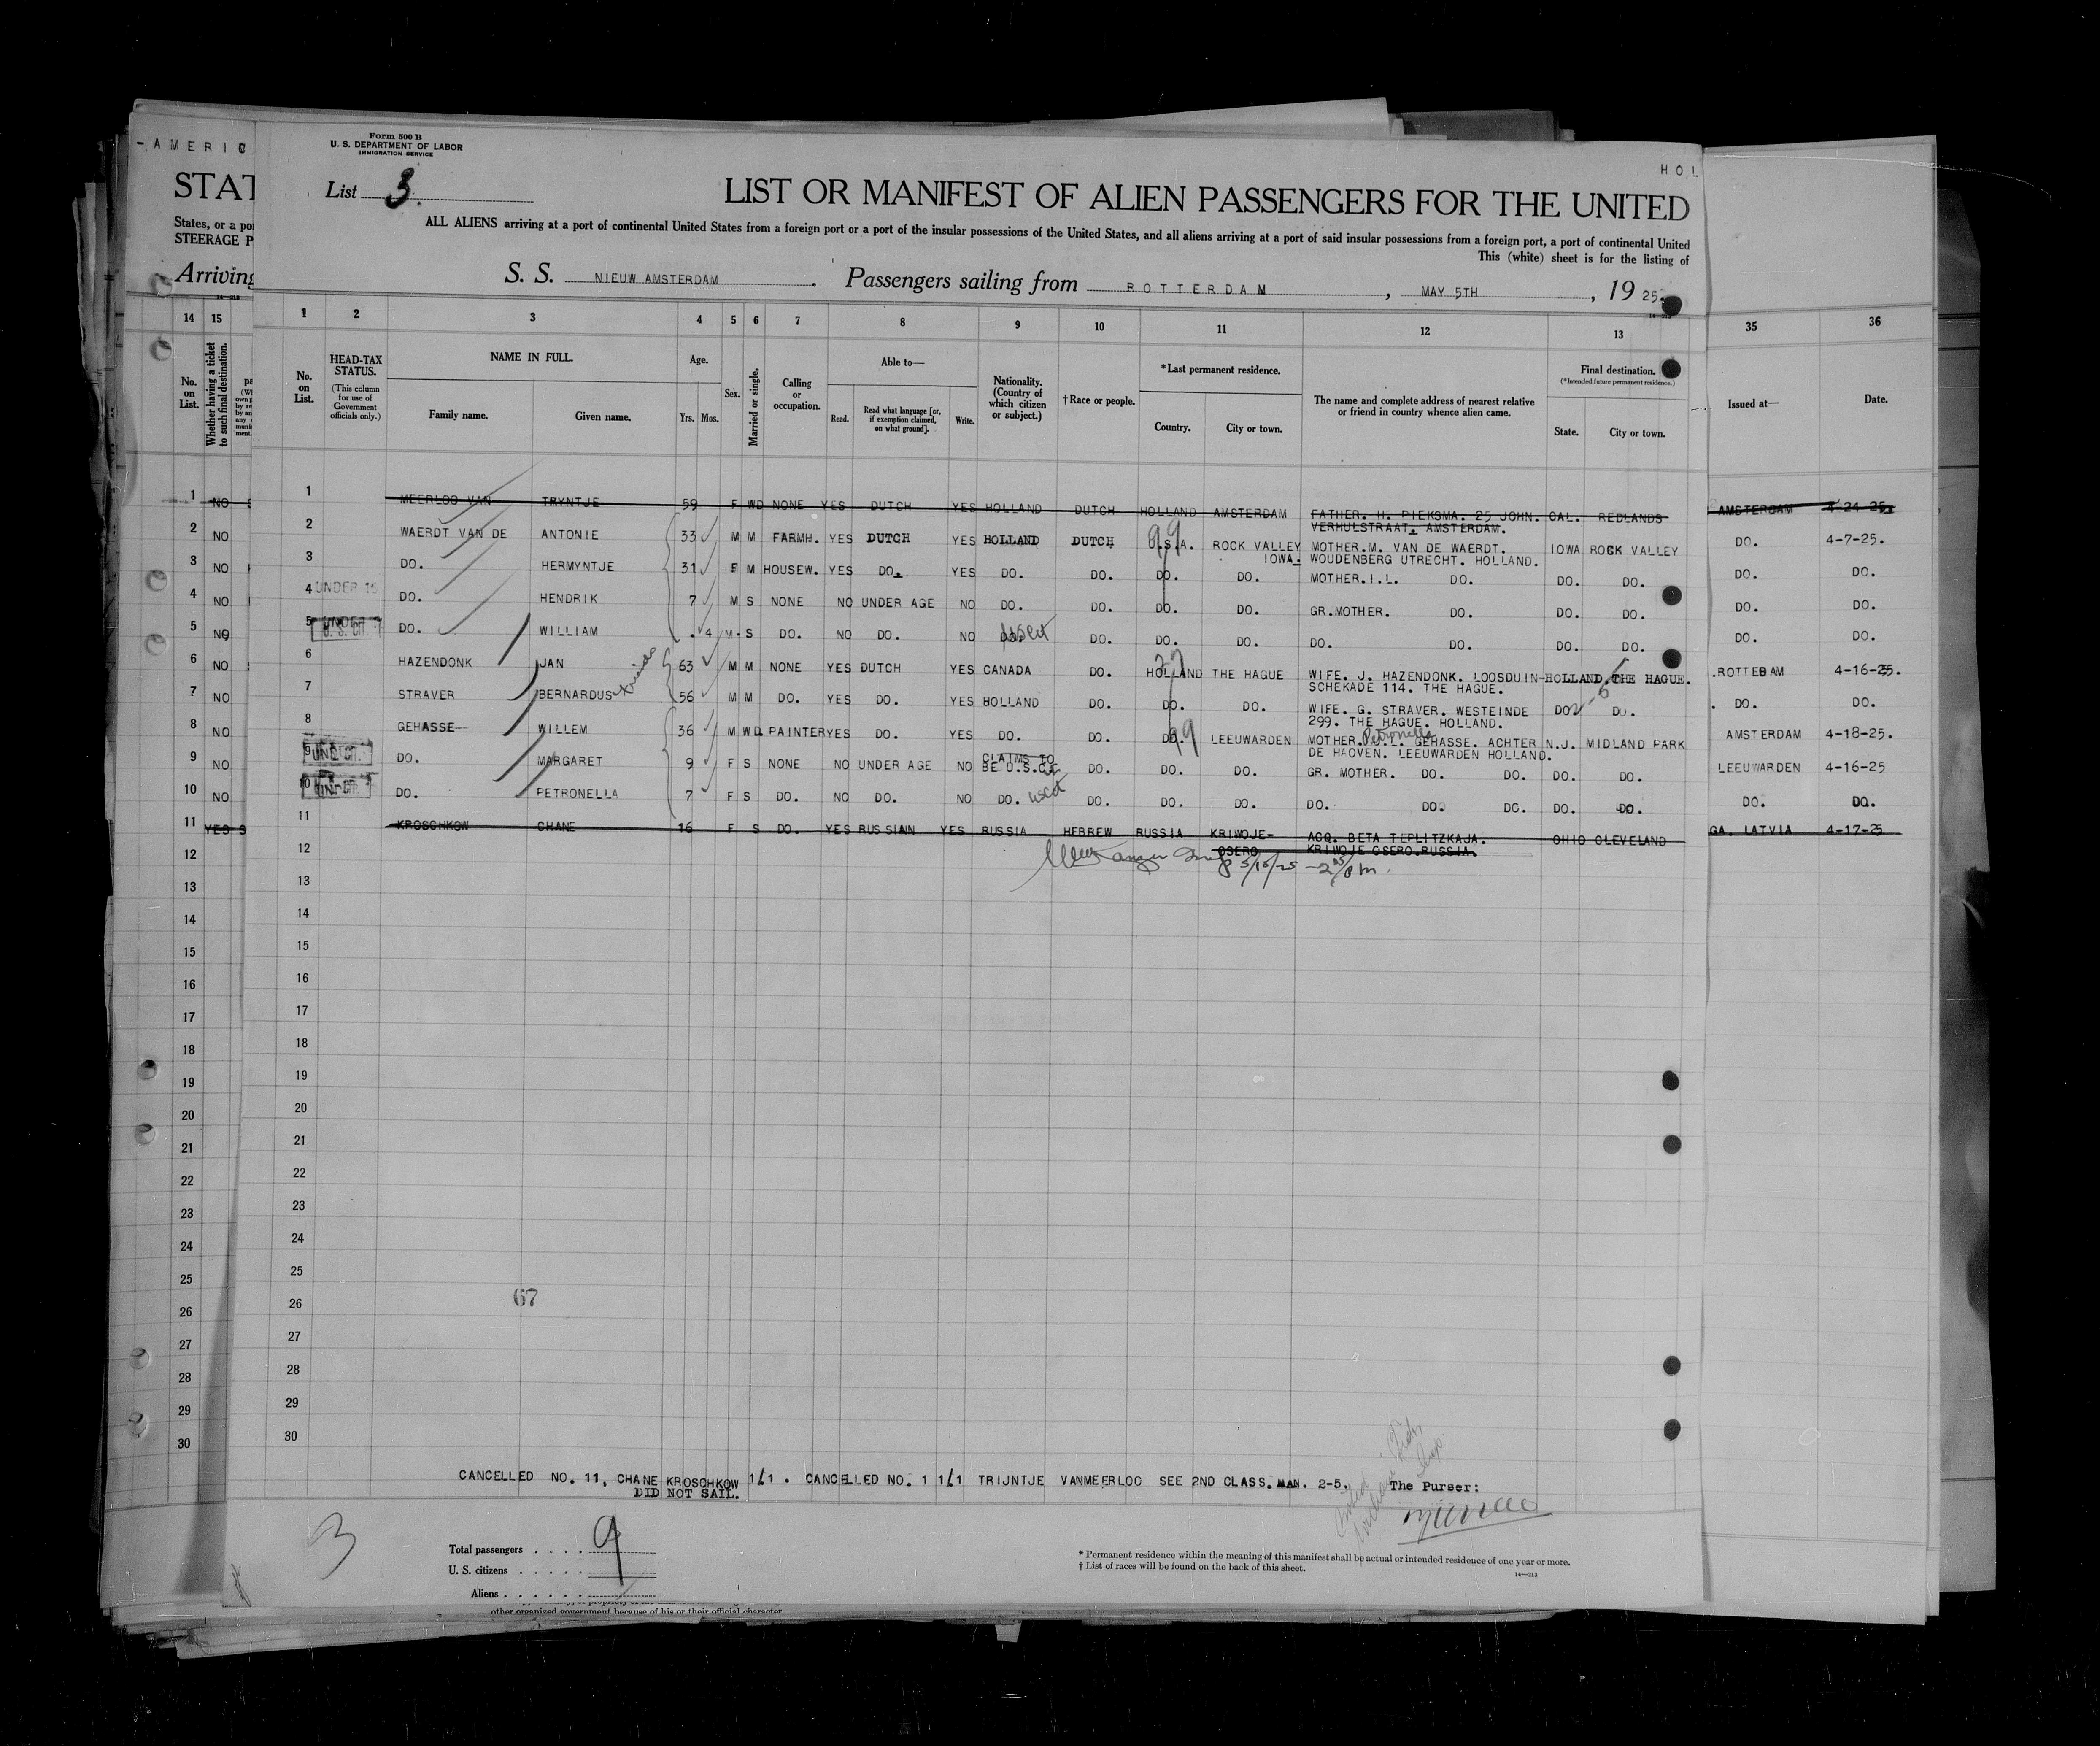 - AMERIC
STAT
States, or a por
STEERAGE P
Arriving
Form 500 B
U. S. DEPARTMENT OF LABOR
IMMIGRATION SERVICE
HOL
List 3.
LIST OR MANIFEST OF ALIEN PASSENGERS FOR THE UNITED
ALL ALIENS arriving at a port of continental United States from a foreign port or a port of the insular possessions of the United States, and all aliens arriving at a port of said insular possessions from a foreign port, a port of continental United
This (white) sheet is for the listing of
S. S. NIEUW AMSTERDAM. Passengers sailing from ROTTERDAM, MAY 5TH, 19 25.
14 15 1 2 3 4 5 6 7 8 9 10 11 12 13 35 36
No. on List. Whether having a ticket to such final destination. No. on List. HEAD-TAX STATUS. (This column for use of Government officials only.) NAME IN FULL. Family name. Given name. Age. Yrs. Mos. Sex. Married or single. Calling or occupation. Able to— Read. Read what language [or, if exemption claimed, on what ground]. Write. Nationality. (Country of which citizen or subject.) †Race or people. *Last permanent residence. Country. City or town. The name and complete address of nearest relative or friend in country whence alien came. Final destination. (*Intended future permanent residence.) State. City or town. Issued at— Date.
1 NO 1 MEERLOO VAN TRYNTJE 59 F WD NONE YES DUTCH YES HOLLAND DUTCH HOLLAND AMSTERDAM FATHER. H. PIEKSMA. 25 JOHN. CAL. REDLANDS AMSTERDAM 4-24-25.
VERHULSTRAAT. AMSTERDAM.
2 NO 2 WAERDT VAN DE ANTONIE 33 M M FARMH. YES DUTCH YES HOLLAND DUTCH U.S.A. 99 ROCK VALLEY MOTHER.M. VAN DE WAERDT. IOWA ROCK VALLEY DO. 4-7-25.
IOWA. WOUDENBERG UTRECHT. HOLLAND.
3 NO 3 DO. HERMYNTJE 31 F M HOUSEW. YES DO. YES DO. DO. DO. DO. MOTHER.I.L. DO. DO. DO. DO. DO.
4 NO 4 UNDER 16 DO. HENDRIK 7 M S NONE NO UNDER AGE NO DO. DO. DO. DO. GR.MOTHER. DO. DO. DO. DO. DO.
5 NO 5 UNDER U.S. CIT. DO. WILLIAM 4 M. S DO. NO DO. NO DO. DO. DO. DO. DO. DO. DO. DO. DO.
6 NO 6 HAZENDONK JAN 63 M M NONE YES DUTCH YES CANADA DO. HOLLAND THE HAGUE WIFE. J. HAZENDONK. LOOSDUIN-HOLLAND. THE HAGUE. .ROTTEBAM 4-16-25.
SCHEKADE 114. THE HAGUE.
7 NO 7 STRAVER BERNARDUS friends 56 M M DO. YES DO. YES HOLLAND DO. DO. DO. WIFE. G. STRAVER. WESTEINDE DO. DO. DO. DO.
299. THE HAGUE. HOLLAND.
8 NO 8 GEHASSE WILLEM 36 M WD PAINTER YES DO. YES DO. DO. DO. 99 LEEUWARDEN MOTHER. Petronella GEHASSE. ACHTER N.J. MIDLAND PARK AMSTERDAM 4-18-25.
DE HAOVEN. LEEUWARDEN HOLLAND.
9 NO 9 DO. MARGARET 9 F S NONE NO UNDER AGE NO CLAIMS TO BE U.S.C. DO. DO. DO. GR. MOTHER. DO. DO. DO. DO. LEEUWARDEN 4-16-25
10 NO 10 DO. PETRONELLA 7 F S DO. NO DO. NO DO. uscit DO. DO. DO. DO. DO. DO. DO. DO. DO. DO.
11 YES 11 KROSCHKOW CHANE 16 F S DO. YES RUSSIAN YES RUSSIA HEBREW RUSSIA KRIWOJE- ACQ. BETA TEPLITZKAJA. OHIO CLEVELAND GA. LATVIA 4-17-25
OSERO KRIWOJE OSERO.RUSSIA.
12 12 5/15/25 - 2 PM.
13 13
14 14
15 15
16 16
17 17
18 18
19 19
20 20
21 21
22 22
23 23
24 24
25 25
26 26 67
27 27
28 28
29 29
30 30
CANCELLED NO. 11, CHANE KROSCHKOW 1/1. CANCELLED NO. 1 1/1 TRIJNTJE VANMEERLOO SEE 2ND CLASS. MAN. 2-5. The Purser:
DID NOT SAIL.
3
Total passengers . . . . 9
U. S. citizens . . . . .
Aliens . . . . . .
* Permanent residence within the meaning of this manifest shall be actual or intended residence of one year or more.
† List of races will be found on the back of this sheet.
14—213
other organized government because of his or their official character